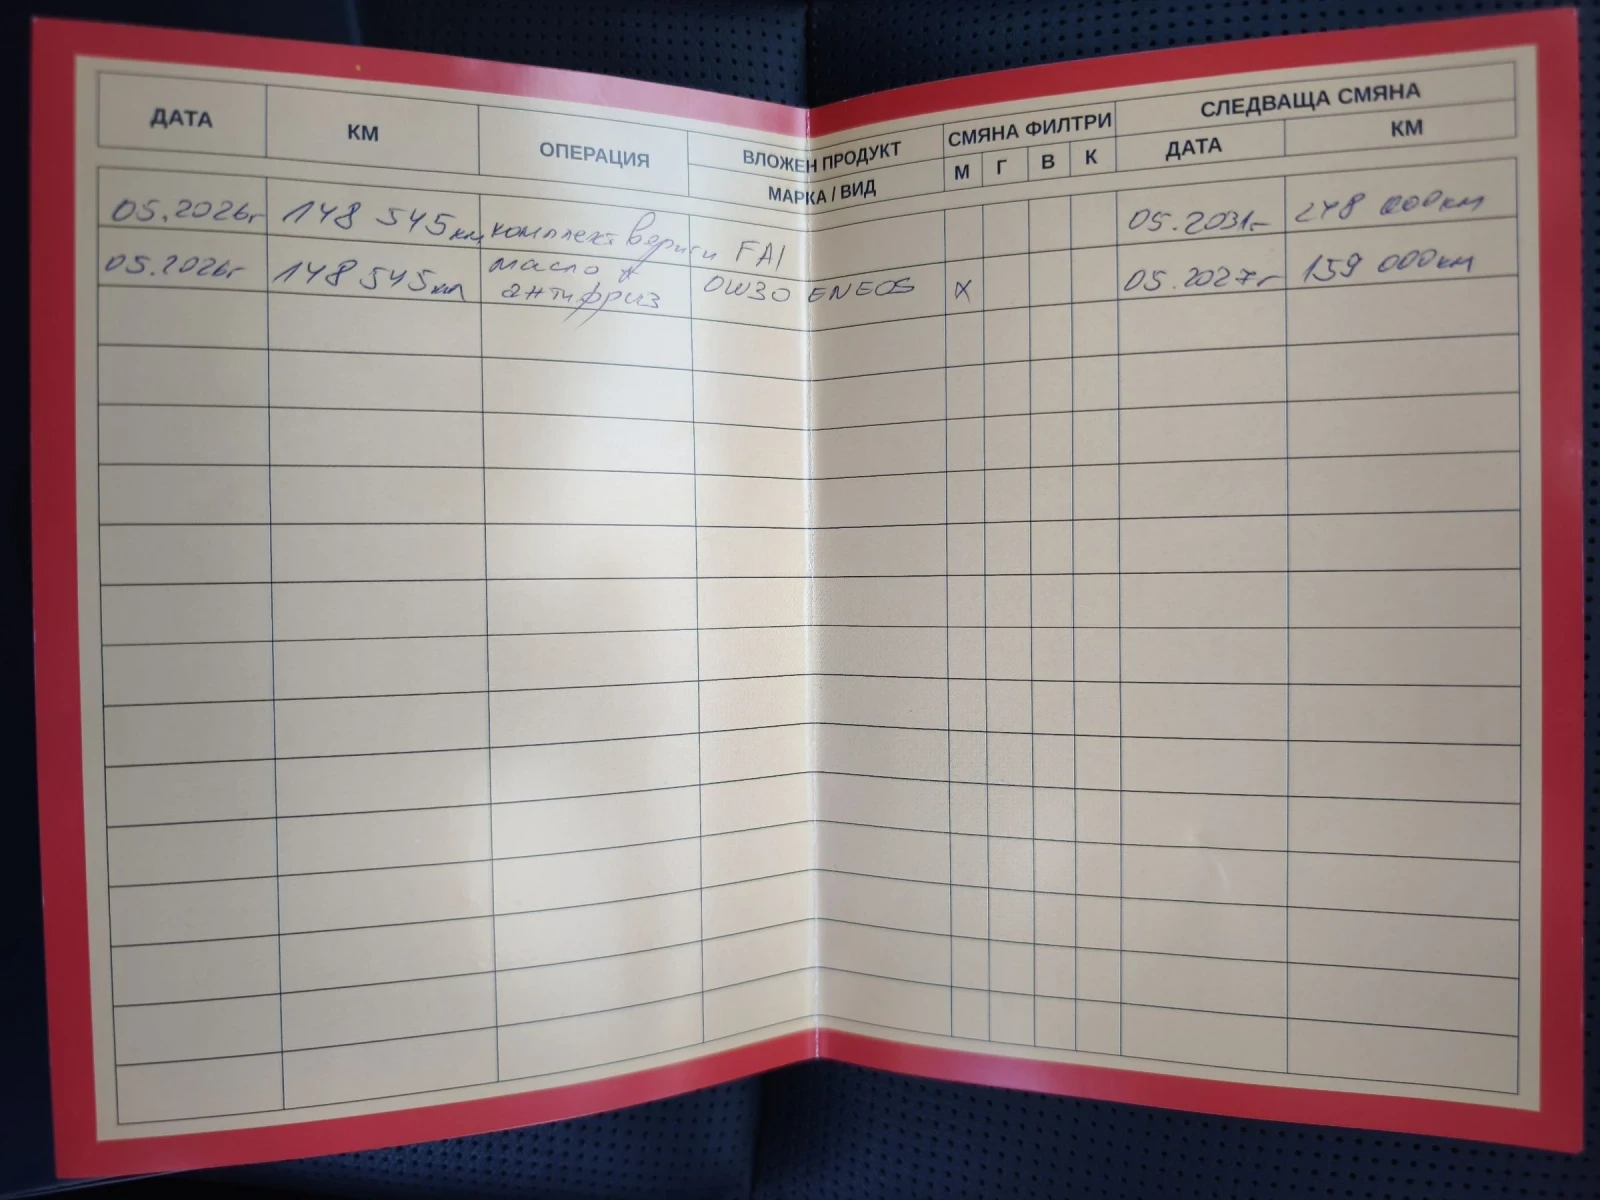 ДАТА КМ ОПЕРАЦИЯ ВЛОЖЕН ПРОДУКТ СМЯНА ФИЛТРИ СЛЕДВАЩА СМЯНА
МАРКА / ВИД М Г В К ДАТА КМ
05.2026г 148 545км комплект вериги FAI 05.2031г 248 000км
05.2026г 148 545км масло + антифриз 0W30 ENEOS X 05.2027г 159 000км